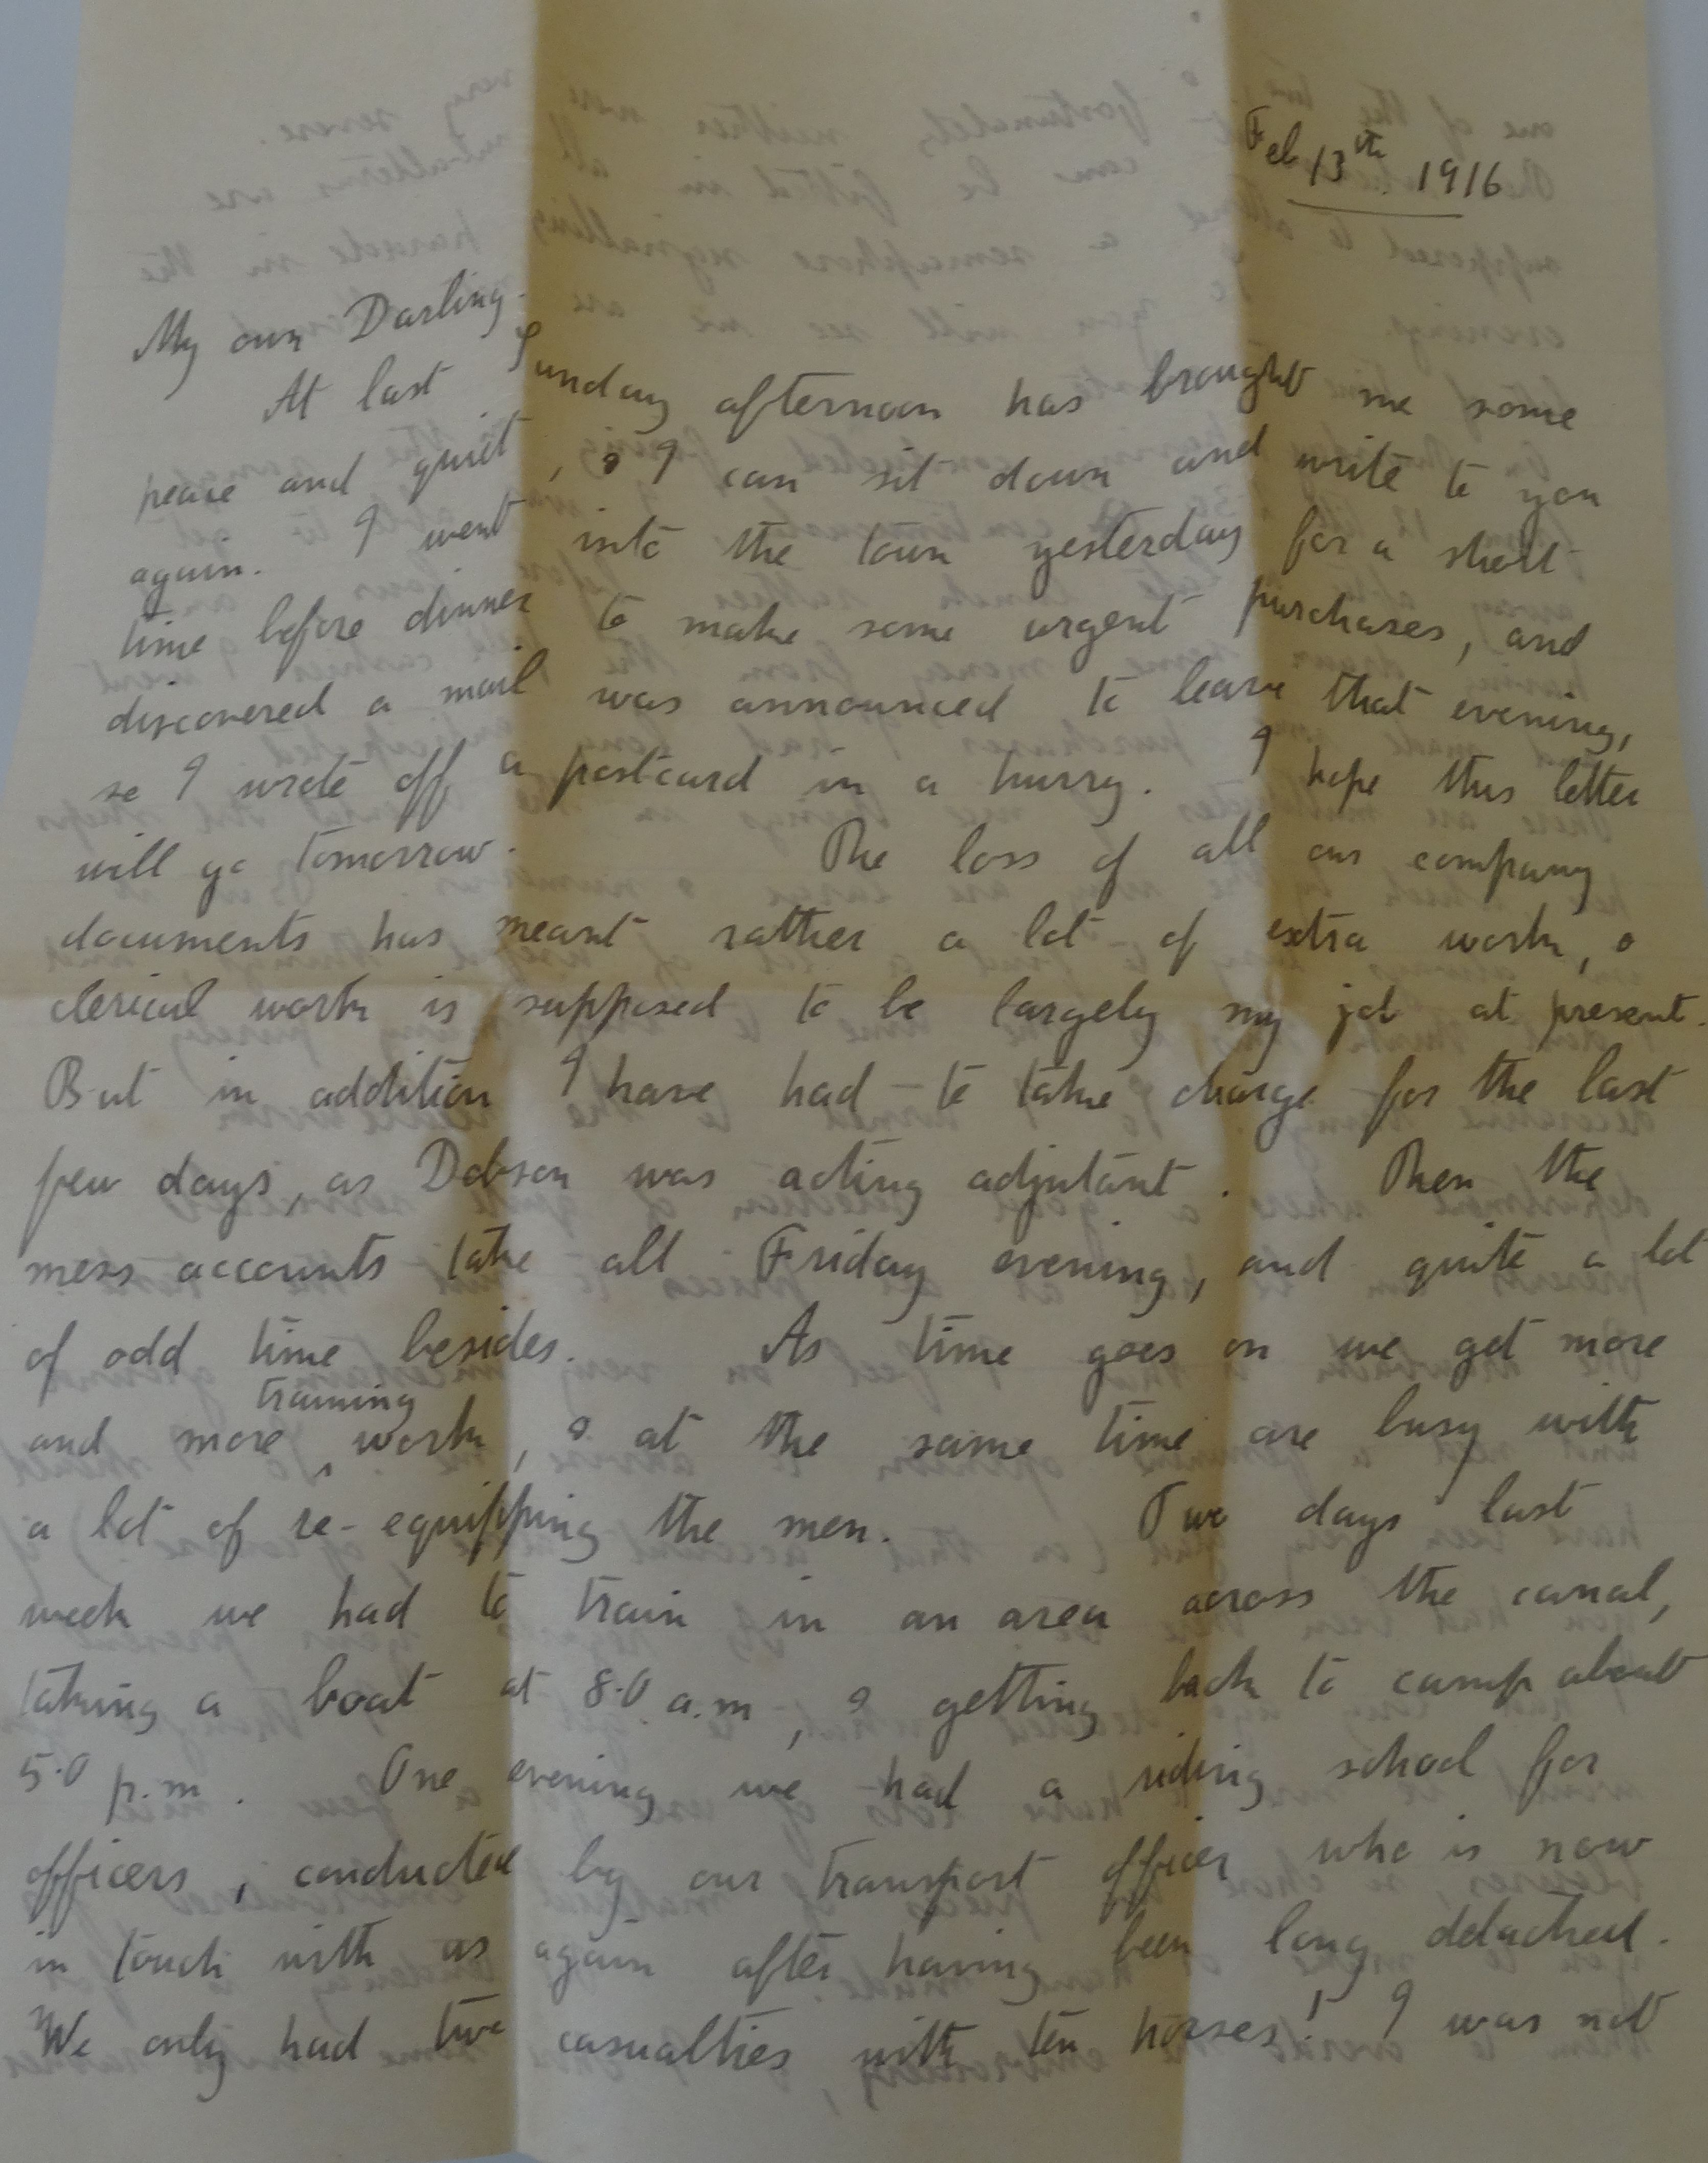 Feb 13th. 1916
My own Darling.
At last Sunday afternoon has brought me some
peace and quiet, & I can sit down and write to you
again. I went into the town yesterday for a short
time before dinner to make some urgent purchases, and
discovered a mail was announced to leave that evening,
so I wrote off a postcard in a hurry. I hope this letter
will go tomorrow. The loss of all our company
documents has meant rather a lot of extra work, &
clerical work is supposed to be largely my job at present.
But in addition I have had to take charge for the last
few days, as Dobson was acting adjutant. Then the
mess accounts take all Friday evening, and quite a lot
of odd time besides. As time goes on we get more
and more training work, & at the same time are busy with
a lot of re-equipping the men. Two days last
week we had to train in an area across the canal,
taking a boat at 8.0 a.m, & getting back to camp about
5.0 p.m. One evening we had a riding school for
officers, conducted by our transport officer who is now
in touch with us again after having been long detached.
We only had two casualties with ten horses! I was not